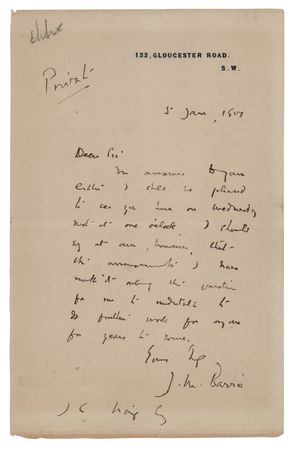 133, GLOUCESTER ROAD.
S. W.
Private
5 Jan, 1901
Dear Sir
In answer to your
letter I shall be pleased
to see you here on Wednesday
next at one o'clock. I should
say at once, however, that
the arrangements I have
made
for me to undertake to
do further work for anyone
for years to come.
Yours truly,
J. M. Barrie
J C